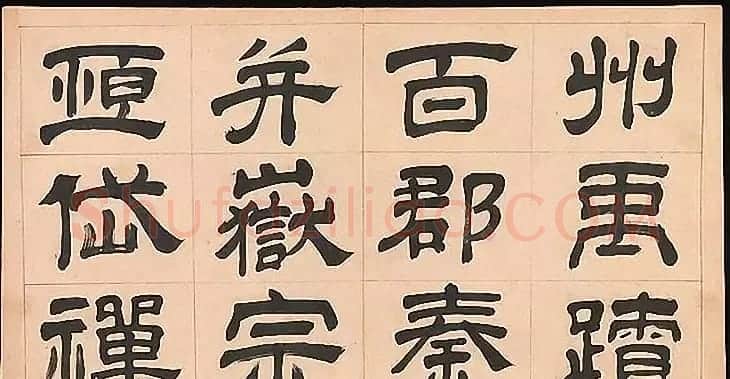 州禹蹟
百郡秦
并嶽宗
恆岱禪
Shufaziliao.COM